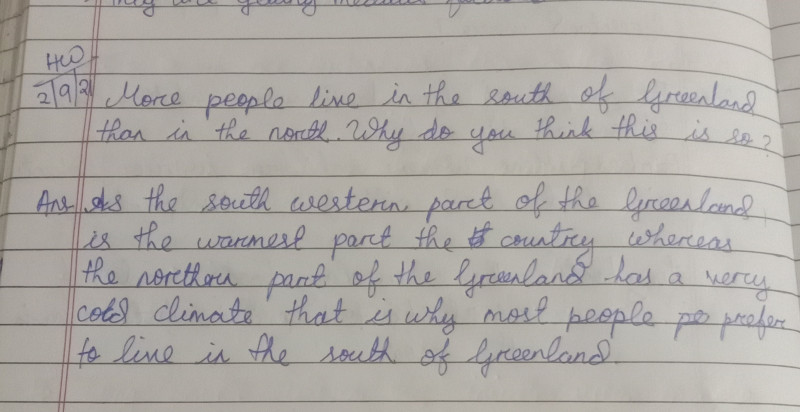 HW
2/9/21 More people live in the south of Greenland
than in the north. Why do you think this is so?
Ans. As the south western part of the Greenland
is the warmest part the country whereas
the northern part of the Greenland has a very
cold climate that is why most people prefer
to live in the south of Greenland.